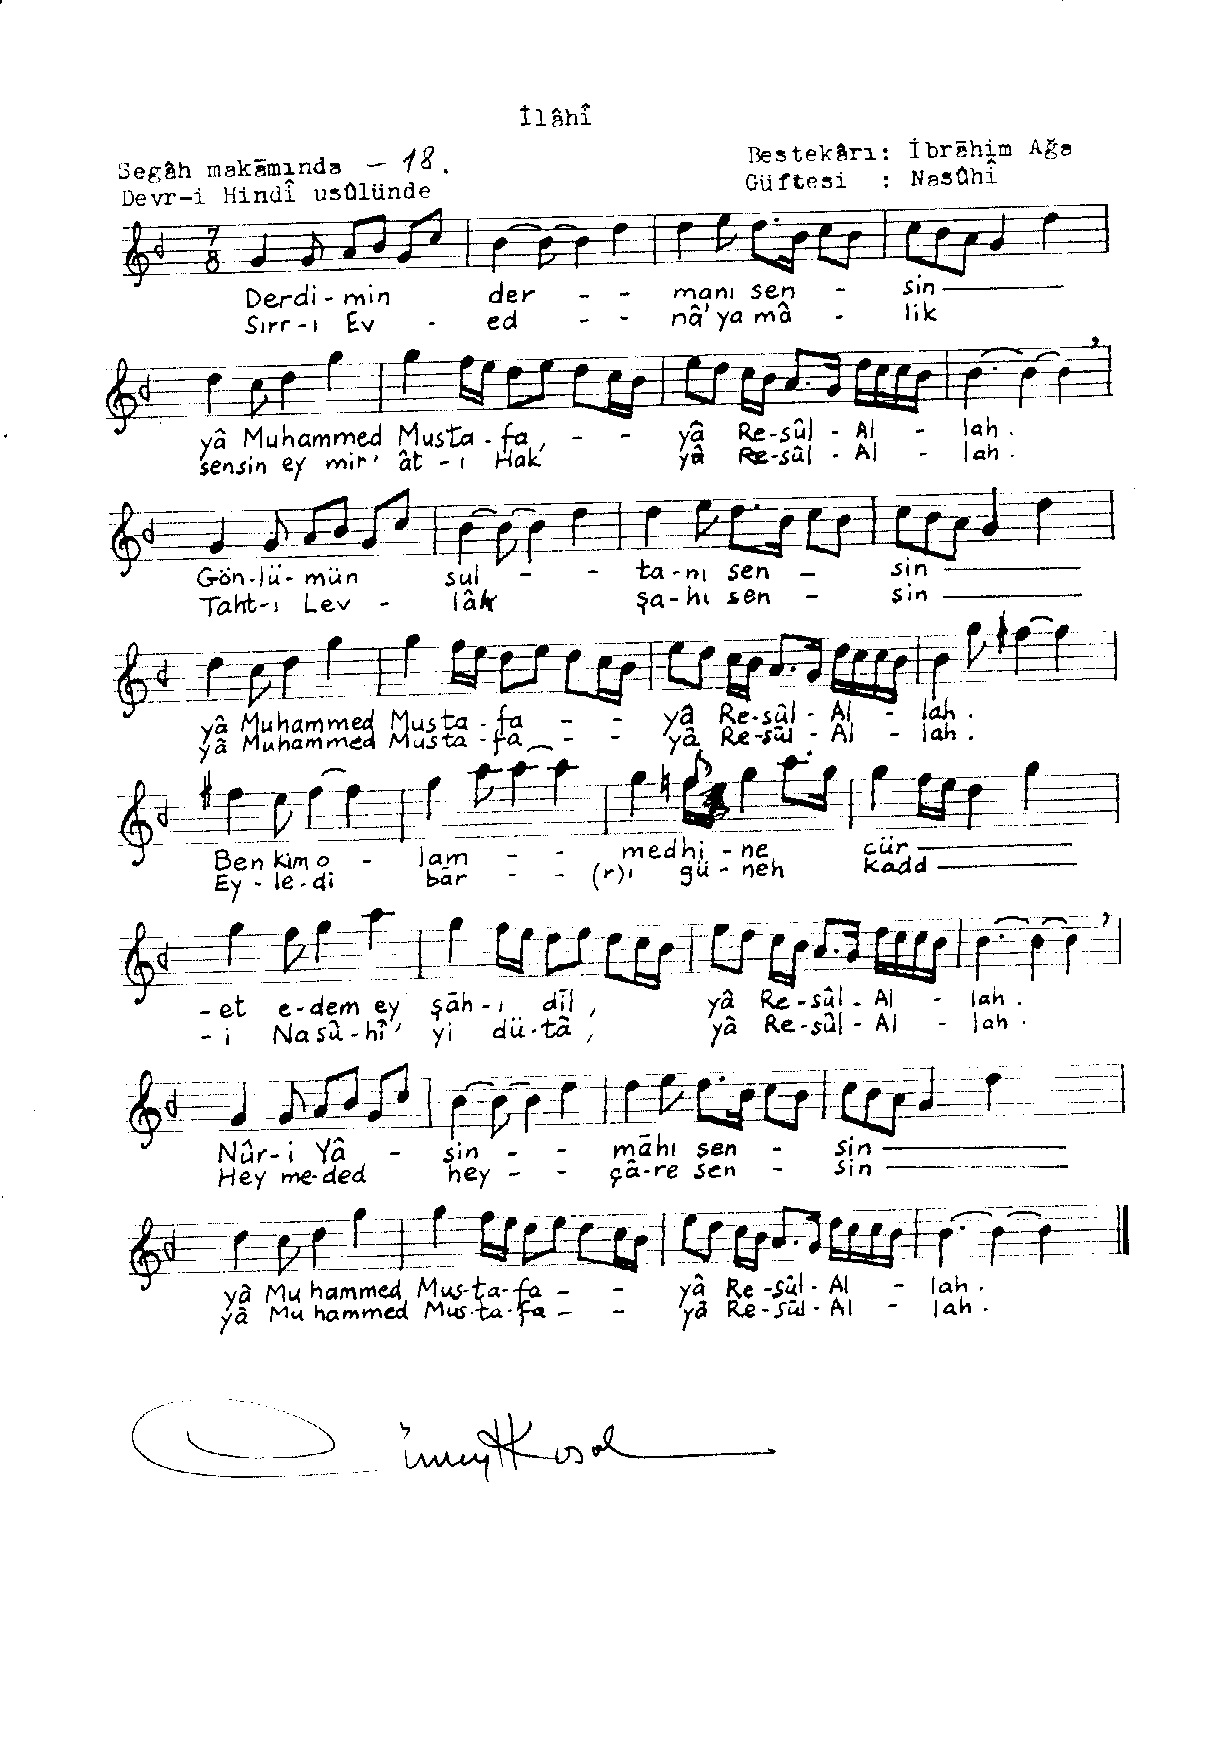 İlâhî
Segâh makāmında - 18.
Bestekârı: İbrāhim Ağa
Devr-i Hindî usûlünde
Güftesi : Nasûhî
7
8
Derdi-min der - - manı sen - sin
Sırr-ı Ev - ed - - nâ'ya mâ - lik
yâ Muhammed Musta-fa, - - yâ Re-sûl - Al - lah.
sensin ey mir'ât-ı Hak yâ Re-sûl - Al - lah.
Gön-lü-mün sul - - ta-nı sen - sin
Taht-ı Lev - lâk şa-hı sen - sin
yâ Muhammed Musta-fa - - yâ Re-sûl - Al - lah.
yâ Muhammed Musta-fa - - yâ Re-sûl - Al - lah.
Ben kim o - lam - - medhi-ne cür
Ey-le-di bār - - (r)ı gü-neh kadd
-et e-dem ey şāh-ı dīl, yâ Re-sûl-Al - lah.
-i Nasû-hî'yi dü-tâ, yâ Re-sûl-Al - lah.
Nûr-i Yâ - sin - - māhı sen - sin
Hey me-ded hey - - çâ-re sen - sin
yâ Muhammed Mus-ta-fa - - yâ Re-sûl-Al - lah.
yâ Muhammed Mus-ta-fa - - yâ Re-sûl-Al - lah.